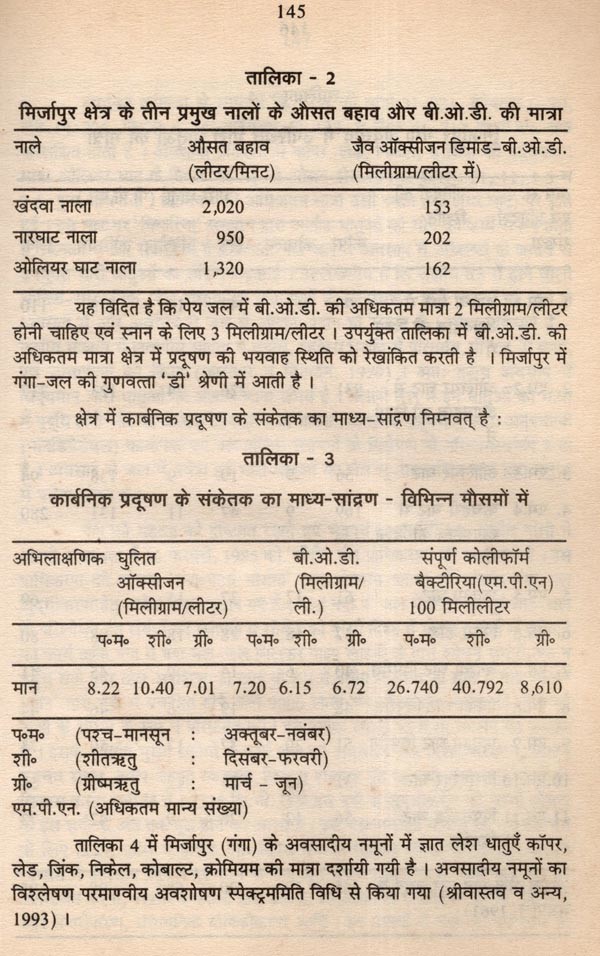 145
तालिका - 2
मिर्जापुर क्षेत्र के तीन प्रमुख नालों के औसत बहाव और बी.ओ.डी. की मात्रा
नाले औसत बहाव जैव ऑक्सीजन डिमांड-बी.ओ.डी.
(लीटर/मिनट) (मिलीग्राम/लीटर में)
खंदवा नाला 2,020 153
नारघाट नाला 950 202
ओलियर घाट नाला 1,320 162
यह विदित है कि पेय जल में बी.ओ.डी. की अधिकतम मात्रा 2 मिलीग्राम/लीटर
होनी चाहिए एवं स्नान के लिए 3 मिलीग्राम/लीटर । उपर्युक्त तालिका में बी.ओ.डी. की
अधिकतम मात्रा क्षेत्र में प्रदूषण की भयवाह स्थिति को रेखांकित करती है । मिर्जापुर में
गंगा-जल की गुणवत्ता 'डी' श्रेणी में आती है ।
क्षेत्र में कार्बनिक प्रदूषण के संकेतक का माध्य-सांद्रण निम्नवत् है :
तालिका - 3
कार्बनिक प्रदूषण के संकेतक का माध्य-सांद्रण - विभिन्न मौसमों में
अभिलाक्षणिक घुलित बी.ओ.डी. संपूर्ण कोलीफॉर्म
ऑक्सीजन (मिलीग्राम/ बैक्टीरिया(एम.पी.एन)
(मिलीग्राम/लीटर) ली.) 100 मिलीलीटर
प॰म॰ शी॰ ग्री॰ प॰म॰ शी॰ ग्री॰ प॰म॰ शी॰ ग्री॰
मान 8.22 10.40 7.01 7.20 6.15 6.72 26.740 40.792 8,610
प॰म॰ (पश्च-मानसून : अक्तूबर-नवंबर)
शी॰ (शीतऋतु : दिसंबर-फरवरी)
ग्री॰ (ग्रीष्मऋतु : मार्च - जून)
एम.पी.एन. (अधिकतम मान्य संख्या)
तालिका 4 में मिर्जापुर (गंगा) के अवसादीय नमूनों में ज्ञात लेश धातुएँ कॉपर,
लेड, जिंक, निकेल, कोबाल्ट, क्रोमियम की मात्रा दर्शायी गयी है । अवसादीय नमूनों का
विश्लेषण परमाण्वीय अवशोषण स्पेक्ट्रममिति विधि से किया गया (श्रीवास्तव व अन्य,
1993) ।